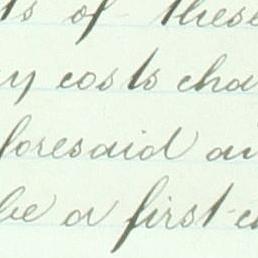 ts of these
ny costs cha
foresaid an
be a first c